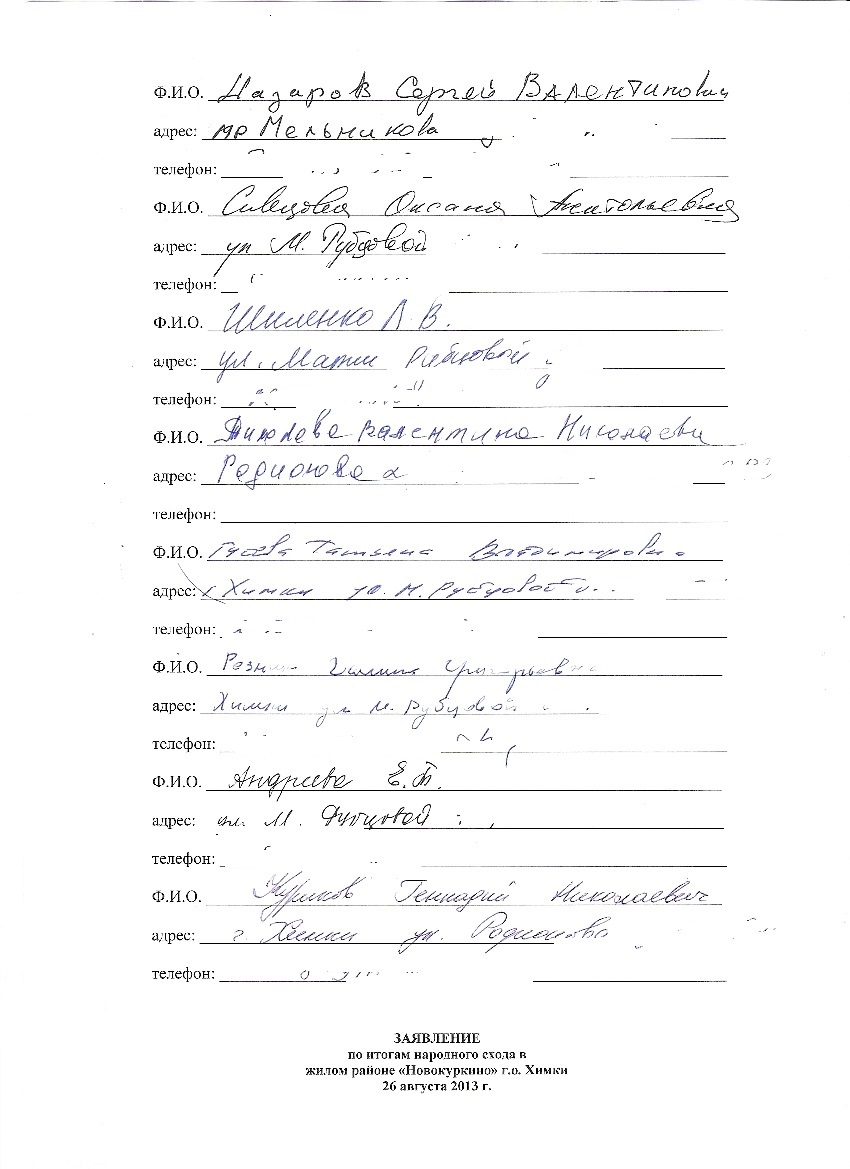 Ф.И.О. Назаров Сергей Валентинович
адрес: пр Мельникова
телефон:
Ф.И.О. Сивцова Оксана Анатольевна
адрес: ул М. Рубцовой
телефон:
Ф.И.О. Шиленко Л. В.
адрес: ул. Марии Рубцовой
телефон:
Ф.И.О. Валентина Николаевн
адрес: Родионова
телефон:
Ф.И.О. Гусева Татьяна Владимировн
адрес: г Химки ул. М. Рубцовой
телефон:
Ф.И.О. Галина Григорьевна
адрес: Химки ул М. Рубцовой
телефон:
Ф.И.О. Андреева Е.В.
адрес: ул. М. Рубцовой
телефон:
Ф.И.О. Куликов Геннадий Николаевич
адрес: г. Химки ул. Родионова
телефон:
ЗАЯВЛЕНИЕ
по итогам народного схода в
жилом районе «Новокуркино» г.о. Химки
26 августа 2013 г.